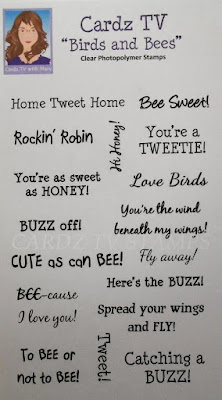 Cardz TV
"Birds and Bees"
Clear Photopolymer Stamps
Cardz TV with Mary
Home Tweet Home
Bee Sweet!
Rockin' Robin
Hi Honey!
You're a
TWEETIE!
You're as sweet
as HONEY!
Love Birds
BUZZ off!
You're the wind
beneath my wings!
CARDZ TV STAMPS
CUTE as can BEE!
Fly away!
BEE-cause
I love you!
Here's the BUZZ!
Spread your wings
and FLY!
To BEE or
not to BEE!
Tweet!
Catching a
BUZZ!